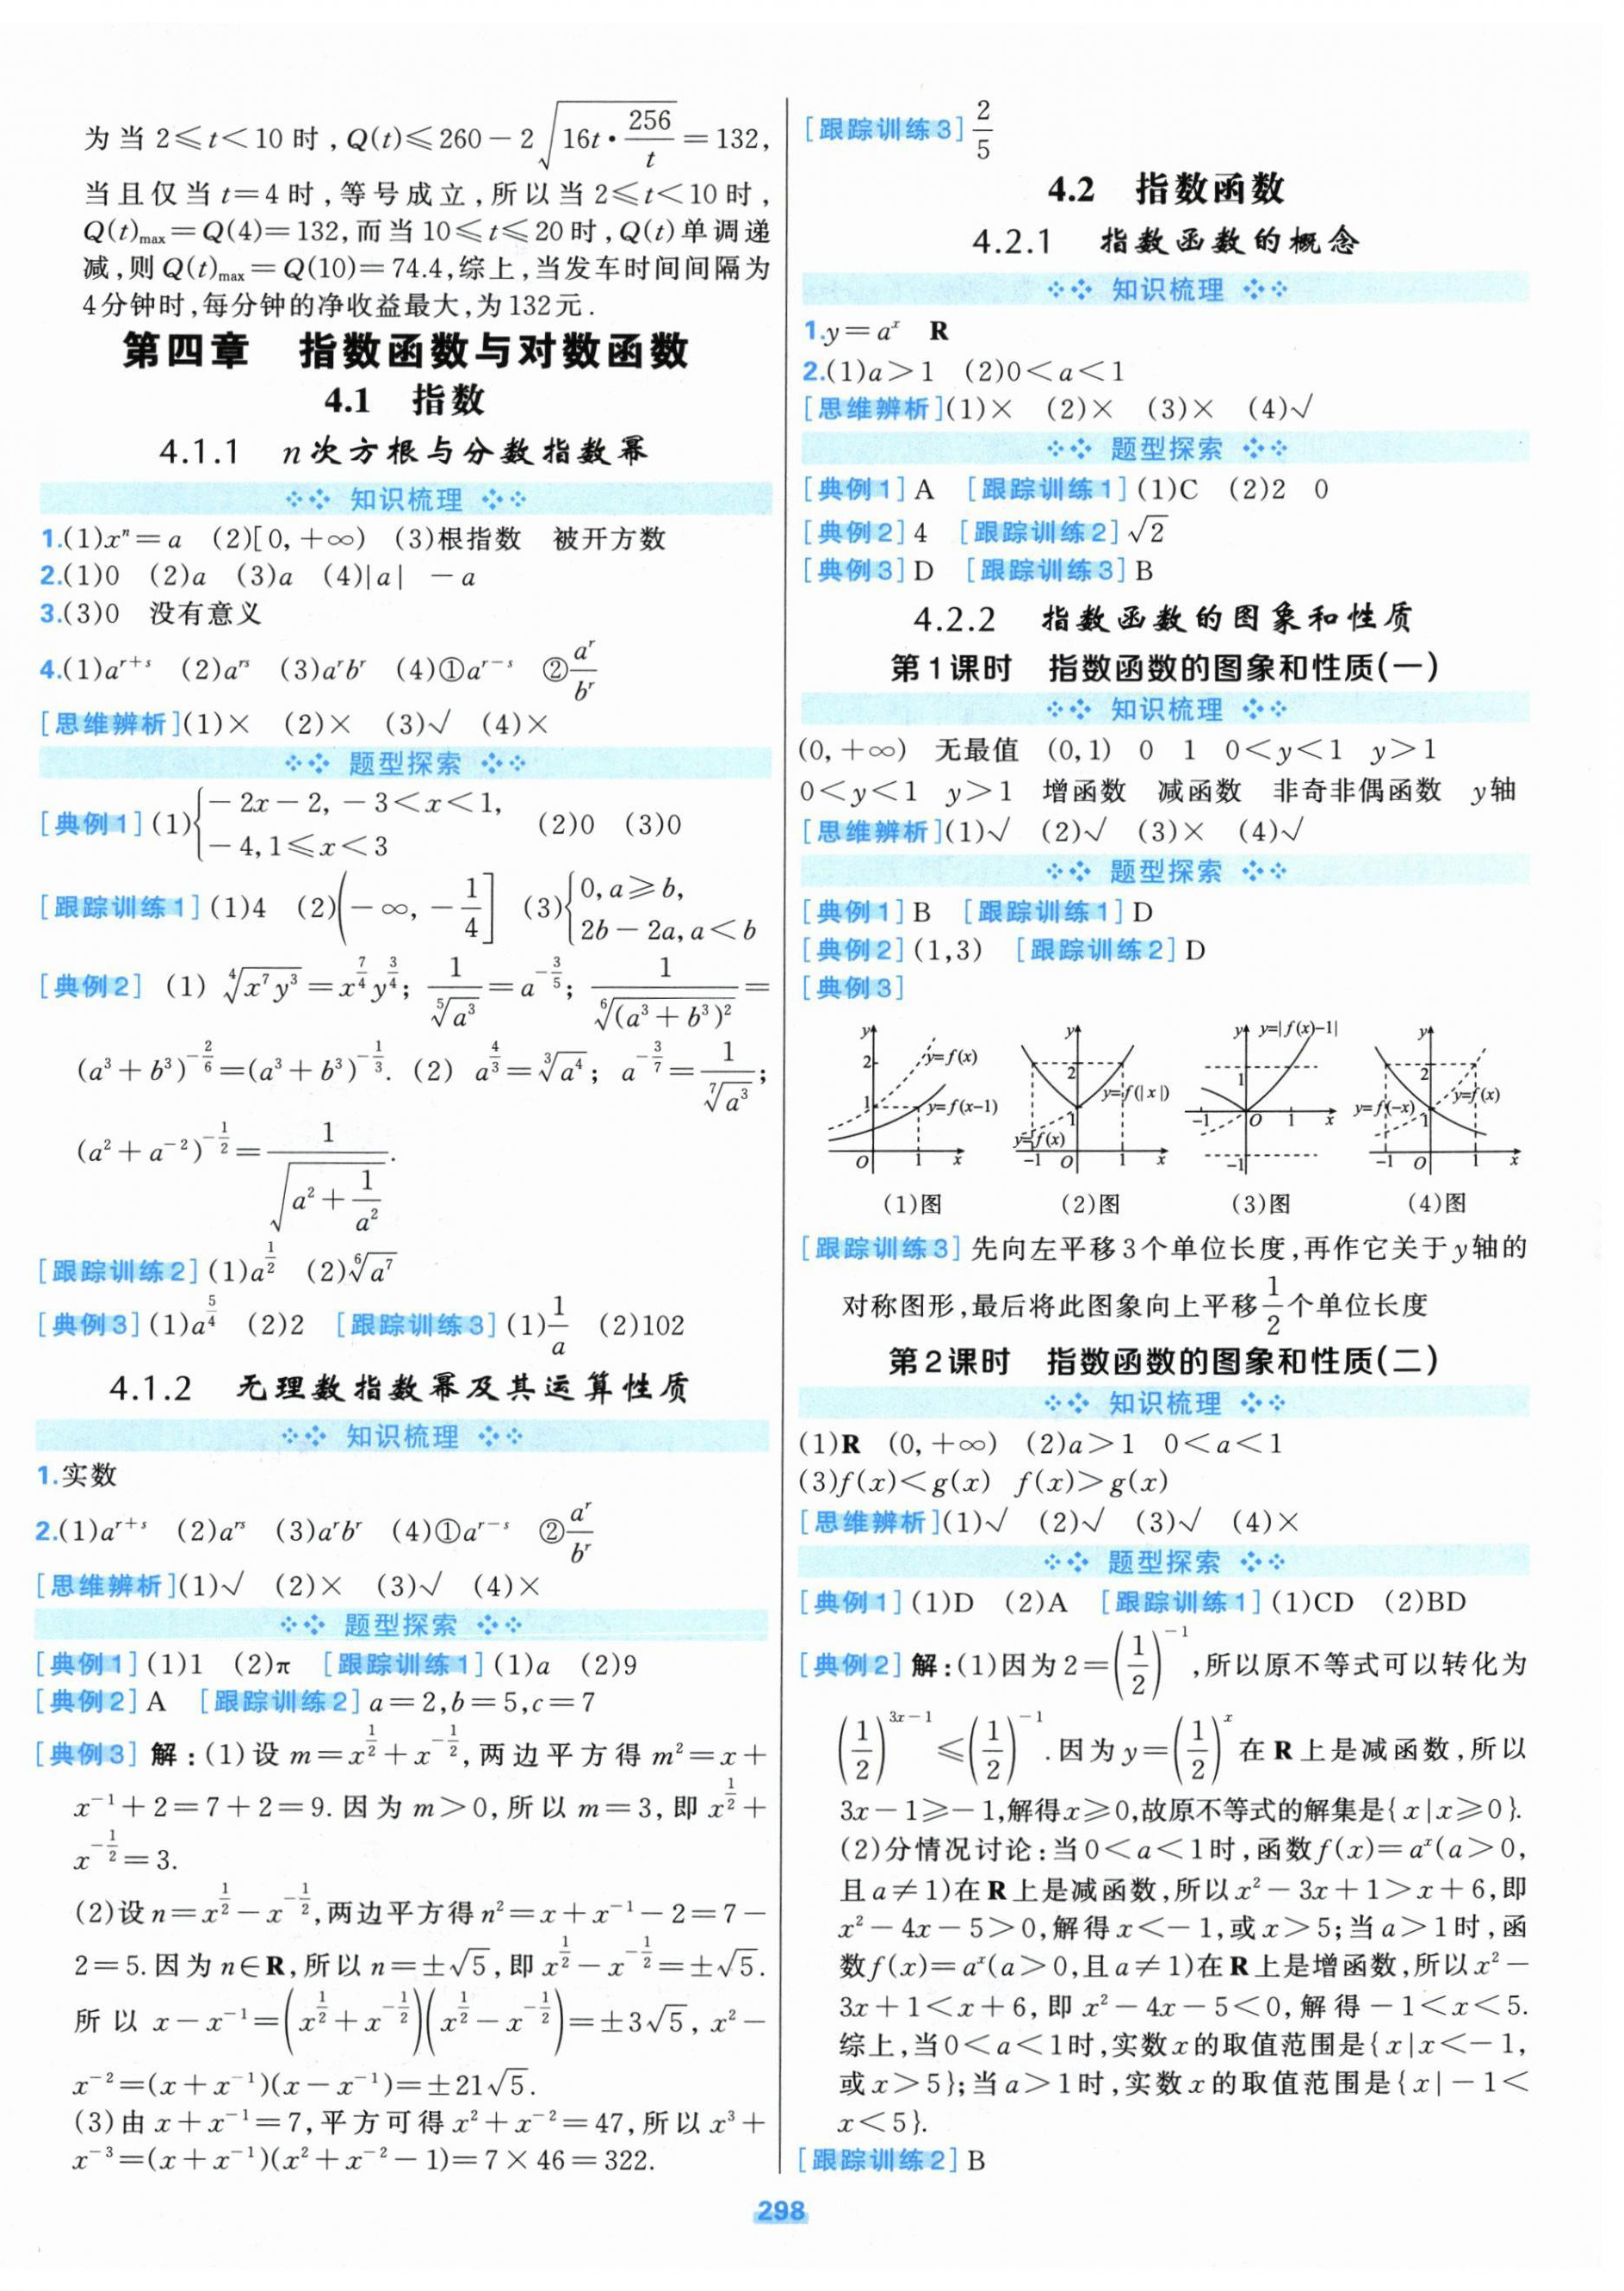 为当2≤t<10时,Q(t)≤260-2√(16t·256/t)=132,
当且仅当t=4时,等号成立,所以当2≤t<10时,
Q(t)max=Q(4)=132,而当10≤t≤20时,Q(t)单调递
减,则Q(t)max=Q(10)=74.4,综上,当发车时间间隔为
4分钟时,每分钟的净收益最大,为132元.
第四章 指数函数与对数函数
4.1 指数
4.1.1 n次方根与分数指数幂
知识梳理
1.(1)xⁿ=a (2)[0,+∞) (3)根指数 被开方数
2.(1)0 (2)a (3)a (4)|a| -a
3.(3)0 没有意义
4.(1)a^(r+s) (2)a^(rs) (3)a^r b^r (4)①a^(r-s) ②a^r/b^r
[思维辨析](1)× (2)× (3)√ (4)×
题型探索
[典例1](1){-2x-2,-3<x<1, -4,1≤x<3 (2)0 (3)0
[跟踪训练1](1)4 (2)(-∞,-1/4] (3){0,a≥b, 2b-2a,a<b
[典例2] (1) ⁴√(x⁷y³)=x^(7/4)y^(3/4); 1/⁵√(a³)=a^(-3/5); 1/⁶√((a³+b³)²)=
(a³+b³)^(-2/6)=(a³+b³)^(-1/3). (2) a^(4/3)=³√(a⁴); a^(-3/7)=1/⁷√(a³);
(a²+a⁻²)^(-1/2)=1/√(a²+1/a²).
[跟踪训练2](1)a^(1/2) (2)⁶√(a⁷)
[典例3](1)a^(5/4) (2)2 [跟踪训练3](1)1/a (2)102
4.1.2 无理数指数幂及其运算性质
知识梳理
1.实数
2.(1)a^(r+s) (2)a^(rs) (3)a^r b^r (4)①a^(r-s) ②a^r/b^r
[思维辨析](1)√ (2)× (3)√ (4)×
题型探索
[典例1](1)1 (2)π [跟踪训练1](1)a (2)9
[典例2]A [跟踪训练2]a=2,b=5,c=7
[典例3]解:(1)设m=x^(1/2)+x^(-1/2),两边平方得m²=x+
x⁻¹+2=7+2=9.因为m>0,所以m=3,即x^(1/2)+
x^(-1/2)=3.
(2)设n=x^(1/2)-x^(-1/2),两边平方得n²=x+x⁻¹-2=7-
2=5.因为n∈R,所以n=±√5,即x^(1/2)-x^(-1/2)=±√5.
所以x-x⁻¹=(x^(1/2)+x^(-1/2))(x^(1/2)-x^(-1/2))=±3√5,x²-
x⁻²=(x+x⁻¹)(x-x⁻¹)=±21√5.
(3)由x+x⁻¹=7,平方可得x²+x⁻²=47,所以x³+
x⁻³=(x+x⁻¹)(x²+x⁻²-1)=7×46=322.
[跟踪训练3]2/5
4.2 指数函数
4.2.1 指数函数的概念
知识梳理
1.y=a^x R
2.(1)a>1 (2)0<a<1
[思维辨析](1)× (2)× (3)× (4)√
题型探索
[典例1]A [跟踪训练1](1)C (2)2 0
[典例2]4 [跟踪训练2]√2
[典例3]D [跟踪训练3]B
4.2.2 指数函数的图象和性质
第1课时 指数函数的图象和性质(一)
知识梳理
(0,+∞) 无最值 (0,1) 0 1 0<y<1 y>1
0<y<1 y>1 增函数 减函数 非奇非偶函数 y轴
[思维辨析](1)√ (2)√ (3)× (4)√
题型探索
[典例1]B [跟踪训练1]D
[典例2](1,3) [跟踪训练2]D
[典例3]
y 2 1 y=f(x) y=f(x-1) O 1 x
y 2 1 y=f(|x|) y=f(x) -1 O 1 x
y y=|f(x)-1| 1 -1 O 1 x -1
y 2 1 y=f(-x) y=f(x) -1 O 1 x
(1)图 (2)图 (3)图 (4)图
[跟踪训练3]先向左平移3个单位长度,再作它关于y轴的
对称图形,最后将此图象向上平移1/2个单位长度
第2课时 指数函数的图象和性质(二)
知识梳理
(1)R (0,+∞) (2)a>1 0<a<1
(3)f(x)<g(x) f(x)>g(x)
[思维辨析](1)√ (2)√ (3)√ (4)×
题型探索
[典例1](1)D (2)A [跟踪训练1](1)CD (2)BD
[典例2]解:(1)因为2=(1/2)⁻¹,所以原不等式可以转化为
(1/2)^(3x-1)≤(1/2)⁻¹.因为y=(1/2)^x在R上是减函数,所以
3x-1≥-1,解得x≥0,故原不等式的解集是{x|x≥0}.
(2)分情况讨论:当0<a<1时,函数f(x)=a^x(a>0,
且a≠1)在R上是减函数,所以x²-3x+1>x+6,即
x²-4x-5>0,解得x<-1,或x>5;当a>1时,函
数f(x)=a^x(a>0,且a≠1)在R上是增函数,所以x²-
3x+1<x+6,即x²-4x-5<0,解得-1<x<5.
综上,当0<a<1时,实数x的取值范围是{x|x<-1,
或x>5};当a>1时,实数x的取值范围是{x|-1<
x<5}.
[跟踪训练2]B
298